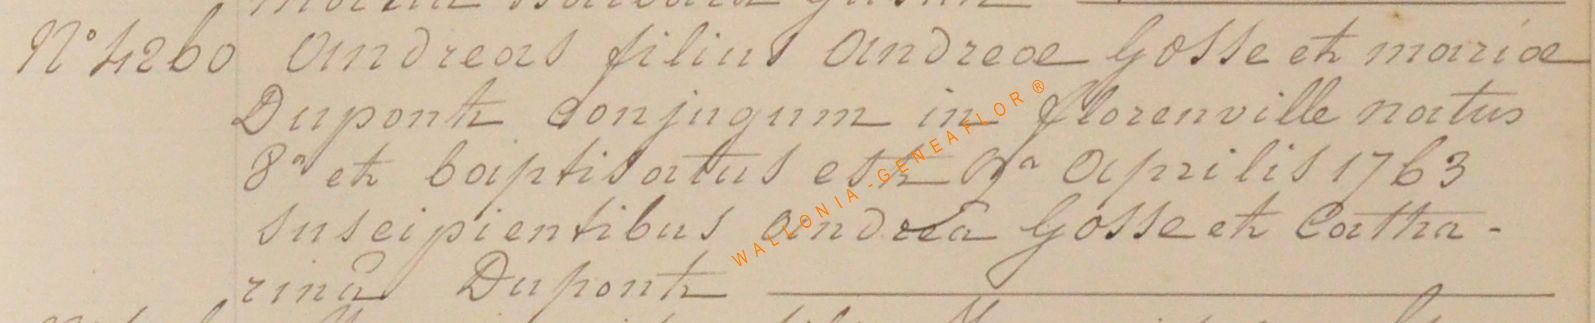 maria Barbara
N° 4260 Andreas filius Andreæ Gosse et mariæ
Dupont conjugum in florenville natus
8ª et baptisatus est 9ª Aprilis 1763
suscipientibus Andrea Gosse et Catha-
rinâ Dupont
WALLONIA-GENEAFLOR®